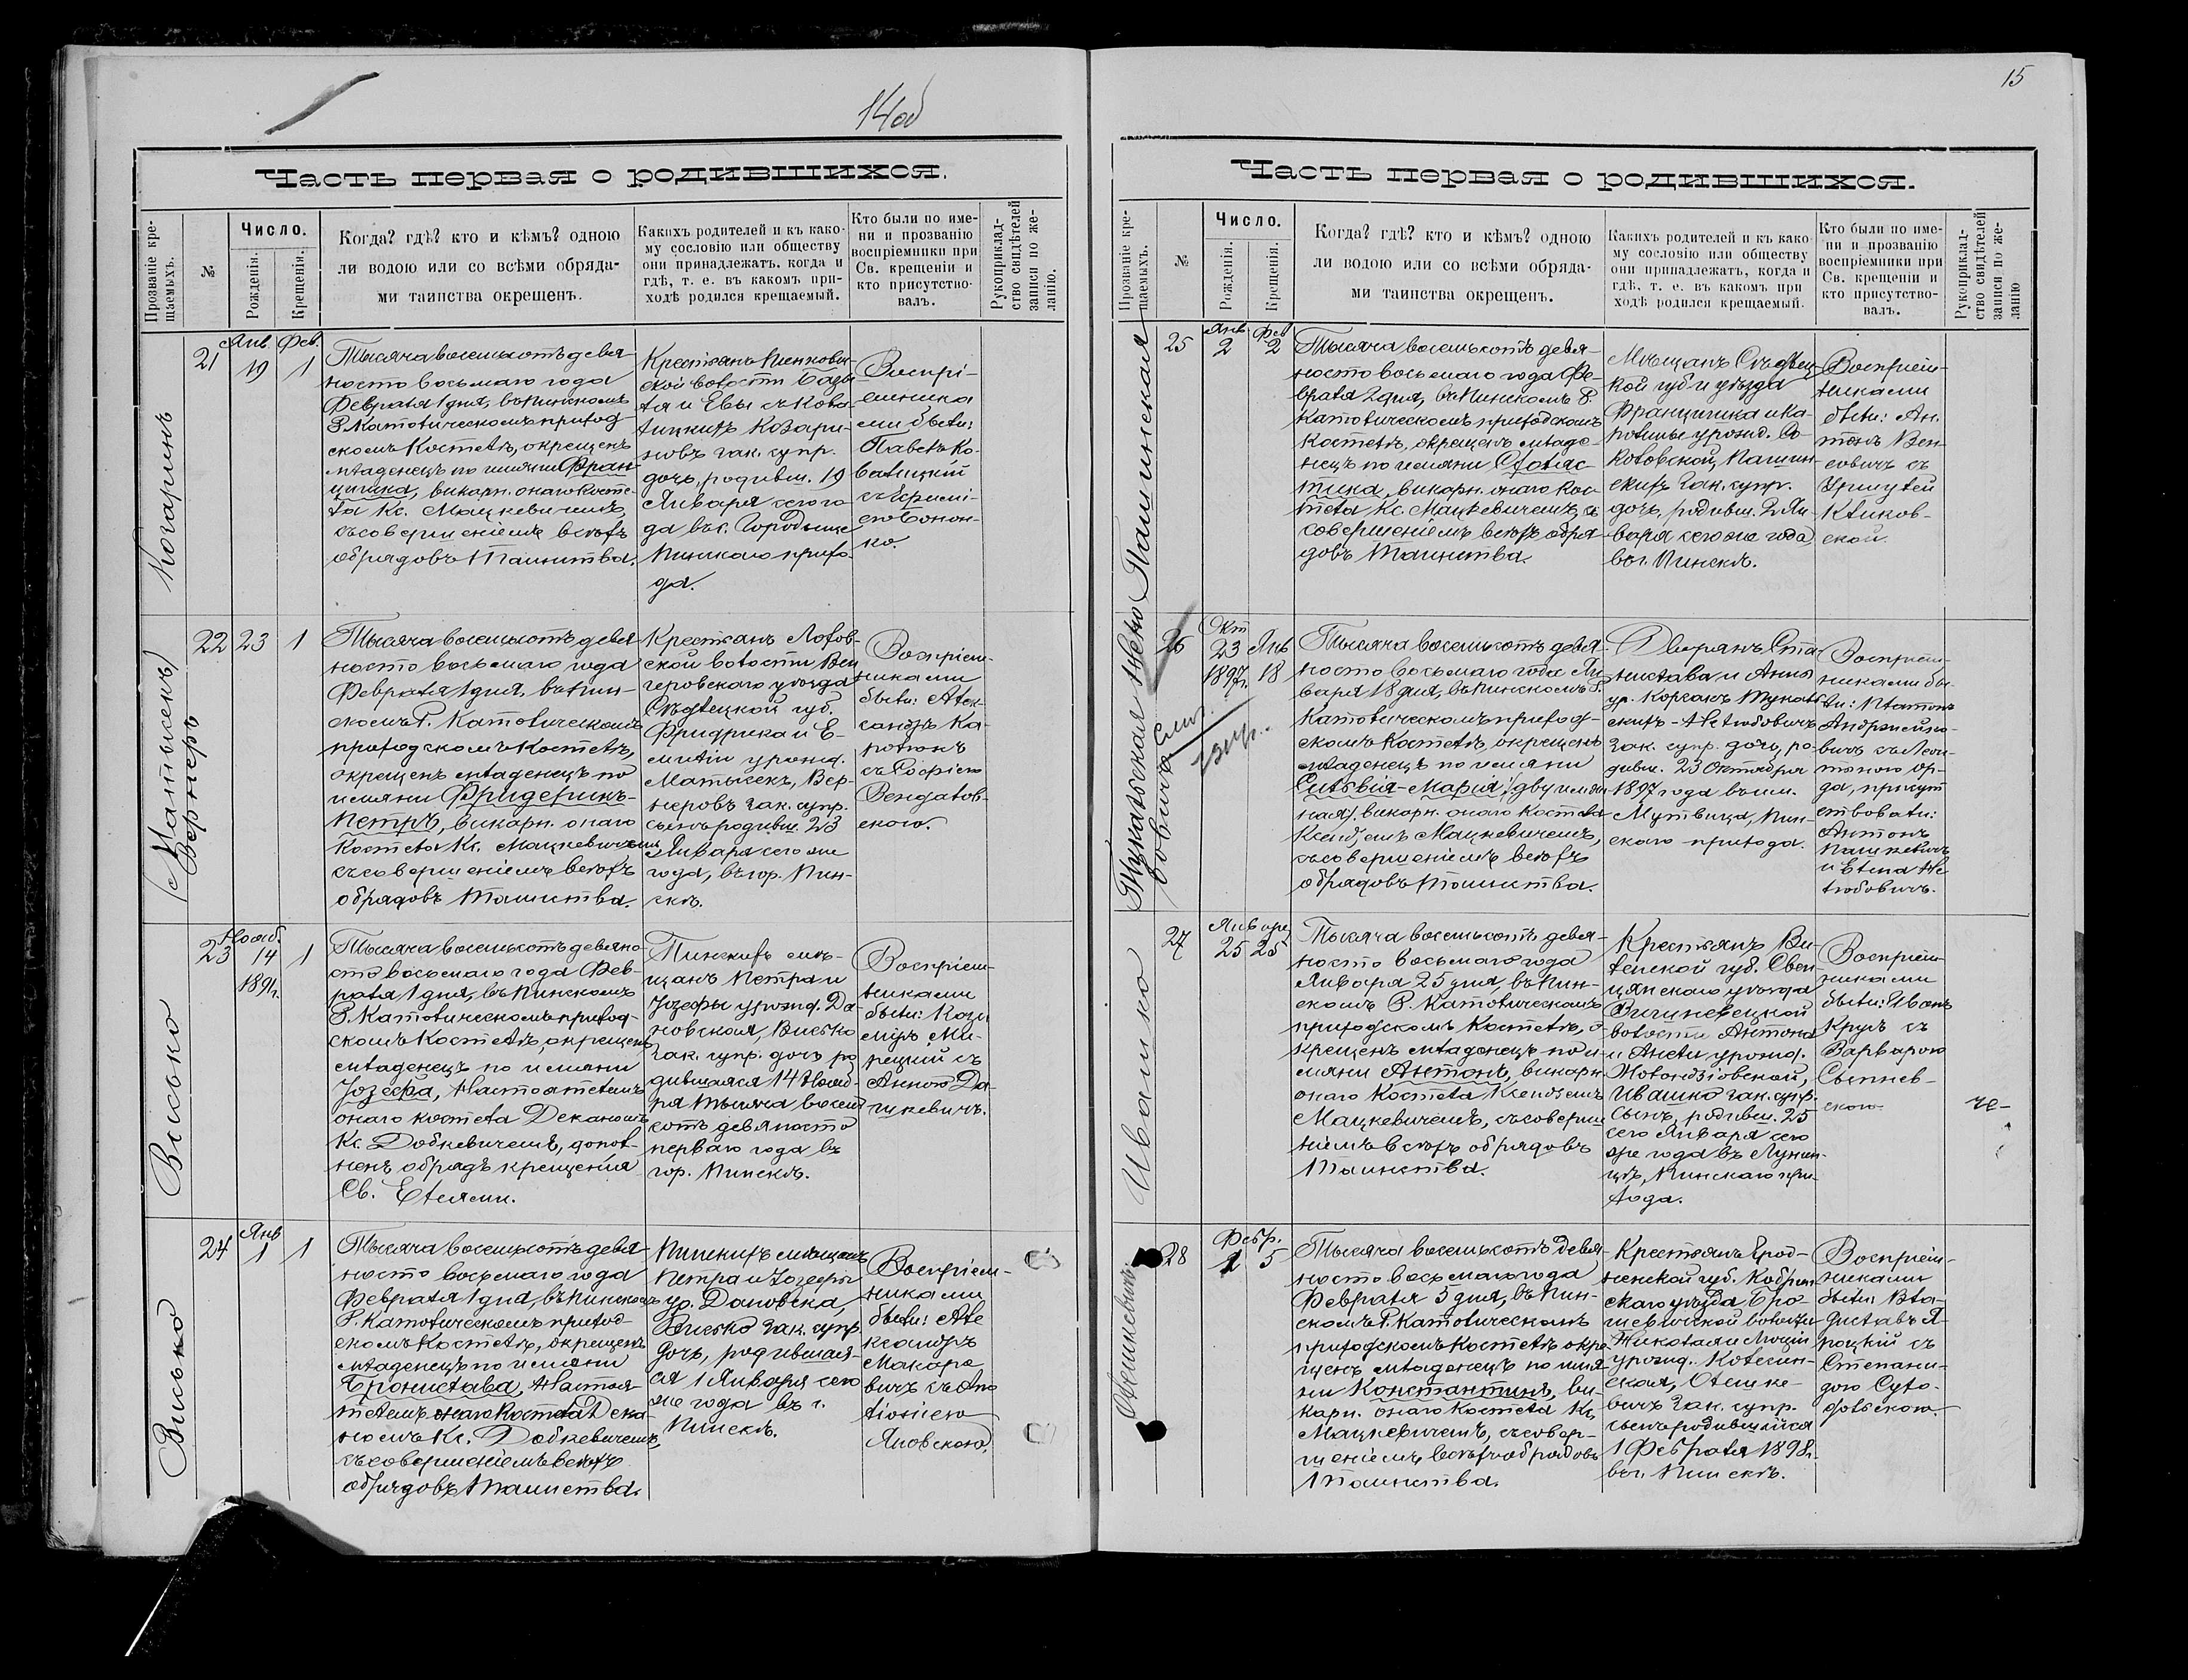 14об
Часть первая о родившихся.
Прозваніе кре-
щаемыхъ.
№
Число.
Рожденія.
Крещенія.
Когда? гдѣ? кто и кѣмъ? одною
ли водою или со всѣми обряда-
ми таинства окрещенъ.
Какихъ родителей и къ како-
му сословію или обществу
они принадлежатъ, когда и
гдѣ, т. е. въ какомъ при-
ходѣ родился крещаемый.
Кто были по име-
ни и прозванію
воспріемники при
Св. крещеніи и
кто присутство-
валъ.
Рукоприклад-
ство свидѣтелей
записи по же-
ланію.
21
Янв. Фев.
19 1
Тысяча восемьсотъ девя-
носто восьмаго года
Февраля 1 дня, въ Пинскомъ
Р. Католическомъ приход
скомъ Костелѣ, окрещенъ
младенецъ по имяни Фран
цишка, викарн. онаго Косте-
ла Кс. Мацкевичемъ,
съ совершеніемъ всѣхъ
обрядовъ Таинства.
Крестьянъ Пинкович-
ской волости
ла и Евы съ Кова-
лицкихъ
новъ зак. супр.
дочь, родивш. 19
Января сего го
да въ с. Городище
Пинскаго прихо-
да.
Воспрі-
емника
ми были:
Павелъ Ко-
валицкій
ко.
Матысекъ
Вернеръ
22 23 1
Тысяча восемьсотъ девя
носто восьмаго года
Февраля 1 дня, въ Пин-
скомъ Р. Католическомъ
приходскомъ Костелѣ,
окрещенъ младенецъ по
имяни Фридерикъ-
Петръ, викарн. онаго
Костела Кс. Мацкевичемъ
съ совершеніемъ всѣхъ
обрядовъ Таинства.
Крестьянъ
ской волости Вен
геровскаго уѣзда
Сѣдлецкой губ.
Фридриха и Е-
миліи урожд.
Матысекъ, Вер-
неровъ зак. супр.
сынъ родивш. 23
Января сего же
года, въ гор. Пин-
скѣ.
Воспріем-
никами
были: Алек-
сандръ Ка-
ролюкъ
съ Софіею
скою.
Висько
23
Нояб.
14 1
1891г.
Тысяча восемьсотъ девяно-
сто восьмаго года Фев-
раля 1 дня, въ Пинскомъ
Р. Католическомъ приход-
скомъ Костелѣ, окрещенъ
младенецъ по имяни
Jозефа, Настоятелемъ
онаго костела Деканомъ
Кс. Добкевичемъ, допол-
ненъ обрядъ крещенія
Св. Елеями.
Пинскихъ мѣ-
щанъ Петра и
Jозефы урожд. Да-
новская, Висько
зак. супр. дочь ро
дившаяся 14 Нояб-
ря тысяча восем
сотъ девяносто
перваго года въ
гор. Пинскѣ.
Воспріем-
никами
были: Кази
міръ Ми-
рецкій съ
Анною Да-
цкевичъ.
Висько
24
Янв
1 1
Тысяча восемьсотъ девя-
носто восьмаго года
Февраля 1 дня, въ Пинскомъ
Р. Католическомъ приход-
скомъ Костелѣ, окрещенъ
младенецъ по имяни
Брониславa, Настоя-
телемъ онаго Костела Дека-
номъ Кс. Добкевичемъ,
съ совершеніемъ всѣхъ
обрядовъ Таинства.
Пинскихъ мѣщанъ
Петра и Jозефы
ур. Дановска,
Висько зак. супр.
дочь, родившая-
ся 1 Января сего
же года въ г.
Пинскѣ.
Воспріем-
никами
были: Але
ксандръ
Макаре
вичъ съ Апо
лоніею
Яновскою.
15
Часть первая о родившихся.
Прозваніе кре-
щаемыхъ.
№
Число.
Рожденія.
Крещенія.
Когда? гдѣ? кто и кѣмъ? одною
ли водою или со всѣми обряда-
ми таинства окрещенъ.
Какихъ родителей и къ како
му сословію или обществу
они принадлежатъ, когда и
гдѣ, т. е. въ какомъ при
ходѣ родился крещаемый.
Кто были по име-
ни и прозванію
воспріемники при
Св. крещеніи и
кто присутство-
валъ.
Рукоприклад-
ство свидѣтелей
записи по же-
ланію
Пашинская
25
Янв Фев
2 2
Тысяча восемьсотъ девя-
носто восьмаго года Фе-
враля 2 дня, въ Пинскомъ Р.
Католическомъ приходскомъ
Костелѣ, окрещенъ младе-
нецъ по имяни Схоляс-
тика, викарн. онаго Кос
тела Кс. Мацкевичемъ, съ
совершеніемъ всѣхъ обря
довъ Таинства.
Мѣщанъ Сѣдлец
кой губ. и уѣзда
Францишка и Ка-
ролины урожд. Со-
коловской, Пашин-
скихъ зак. супр.
дочь, родивш. 2 Ян-
варя сего же года,
въ г. Пинскѣ.
Воспріем-
никами
были: Ан-
тонъ Вен-
совичъ съ
Уршулей
Кликов-
ской.
26
Окт
23 Янв
1897г. 18
Тысяча восемьсотъ девя-
носто восьмаго года Ян
варя 18 дня, въ Пинскомъ Р.
Католическомъ приход-
скомъ Костелѣ, окрещенъ
младенецъ по имяни
Сильвія-Марія (двуимян
ная), викарн. онаго Костела
Ксендземъ Мацкевичемъ,
съ совершеніемъ всѣхъ
обрядовъ Таинства.
Дворянъ Ста
нислава и Анны
ур. Корсакъ Тукаль
скихъ-Нелюбовичъ
зак. супр. дочь, ро-
дивш. 23 Октября
1897 года въ им.
Мутвица, Пин-
скаго прихода.
Воспріем-
никами бы-
ли: Платонъ
Андржейко-
вичъ съ Леон-
тиною Ор-
да, присут
ствовали:
Антонъ
Пашкевичъ
и Елена Не
любовичъ.
Ивашко
27
Января
25 25
Тысяча восемьсотъ девя-
носто восьмаго года
Января 25 дня, въ Пин-
скомъ Р. Католическомъ
приходскомъ Костелѣ, о-
крещенъ младенецъ по и-
мяни Антонъ, викарн.
онаго Костела Ксендземъ
Мацкевичемъ, съ соверше
ніемъ всѣхъ обрядовъ
Таинства.
Крестьянъ Ви-
ленской губ. Свен
цянскаго уѣзда
волости Антона
и Анели урожд.
Ивашко зак. супр.
сынъ, родивш. 25
сего Января сего
же года въ Лунин-
цѣ, Пинскаго при-
хода.
Воспріем-
никами
были: Иванъ
Круль съ
Варварою
скою.
Олешкевичъ
28
Февр.
1 5
Тысяча восемьсотъ девя-
носто восьмаго года
Февраля 5 дня, въ Пин-
скомъ Р. Католическомъ
приходскомъ Костелѣ окре
щенъ младенецъ по имя-
ни Константинъ, ви-
карн. онаго Костела Кс.
Мацкевичемъ, съ совер-
шеніемъ всѣхъ обрядовъ
Таинства.
Крестьянъ Грод-
ненской губ. Кобрин
скаго уѣзда
волости
урожд.
Олешке-
вичъ зак. супр.
сынъ родившійся
1 Февраля 1898г.
въ г. Пинскѣ.
Воспріем-
никами
были: Вла-
диславъ Я-
роцкій съ
Степани-
дою Сухо-
дольскою.